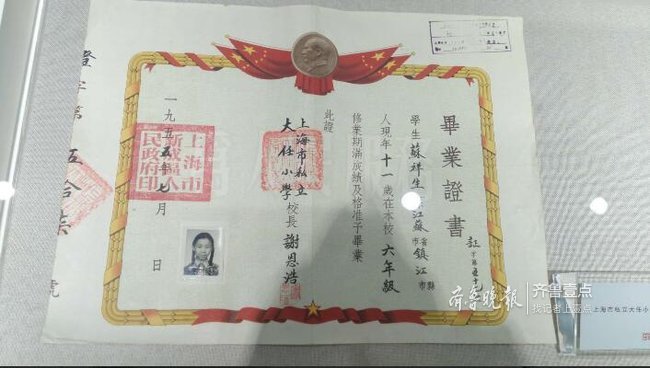 畢業證書
學生蘇祥生係江蘇省市鎮江縣市
人現年十一歲在本校六年級
修業期滿成績及格准予畢業
此證
上海市私立
大任小學校長謝恩浩
一九五五年七月 日
上海市新成區人民政府印
證字第伍拾柒號
齊魯晚報
齐鲁壹点
找记者上壹点
上海市私立大任小